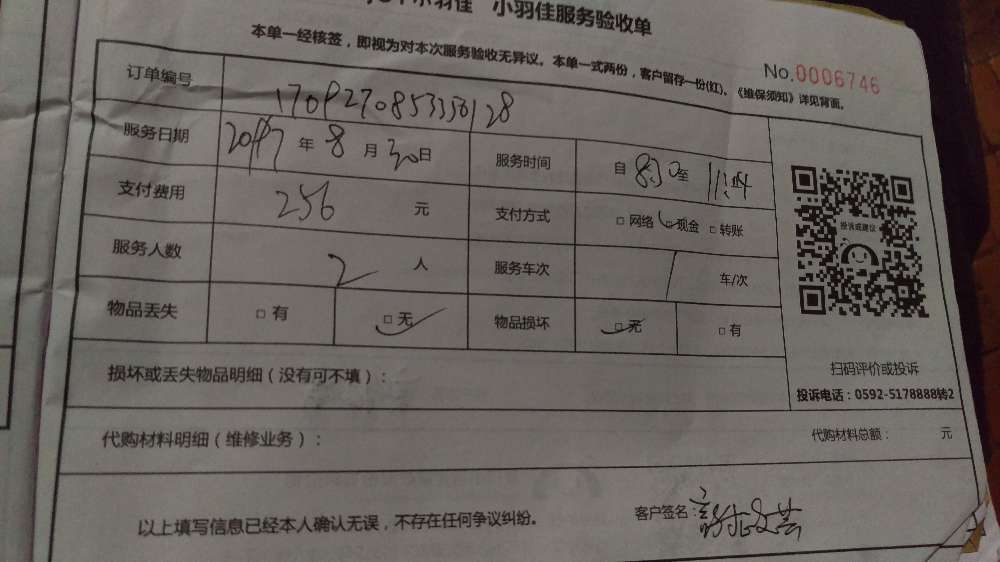 小羽佳服务验收单
本单一经核签，即视为对本次服务验收无异议。本单一式两份，客户留存一份(红)。《维保须知》详见背面。
No.0006746
订单编号
服务日期 2017年8月30日 服务时间 自 8:30 至
支付费用 256 元 支付方式 □网络 □现金 □转账
服务人数 2 人 服务车次 1 车/次
物品丢失 □有 □无 物品损坏 □无 □有
投诉或建议
扫码评价或投诉
投诉电话：0592-5178888转2
损坏或丢失物品明细（没有可不填）：
代购材料明细（维修业务）： 代购材料总额： 元
以上填写信息已经本人确认无误，不存在任何争议纠纷。 客户签名：